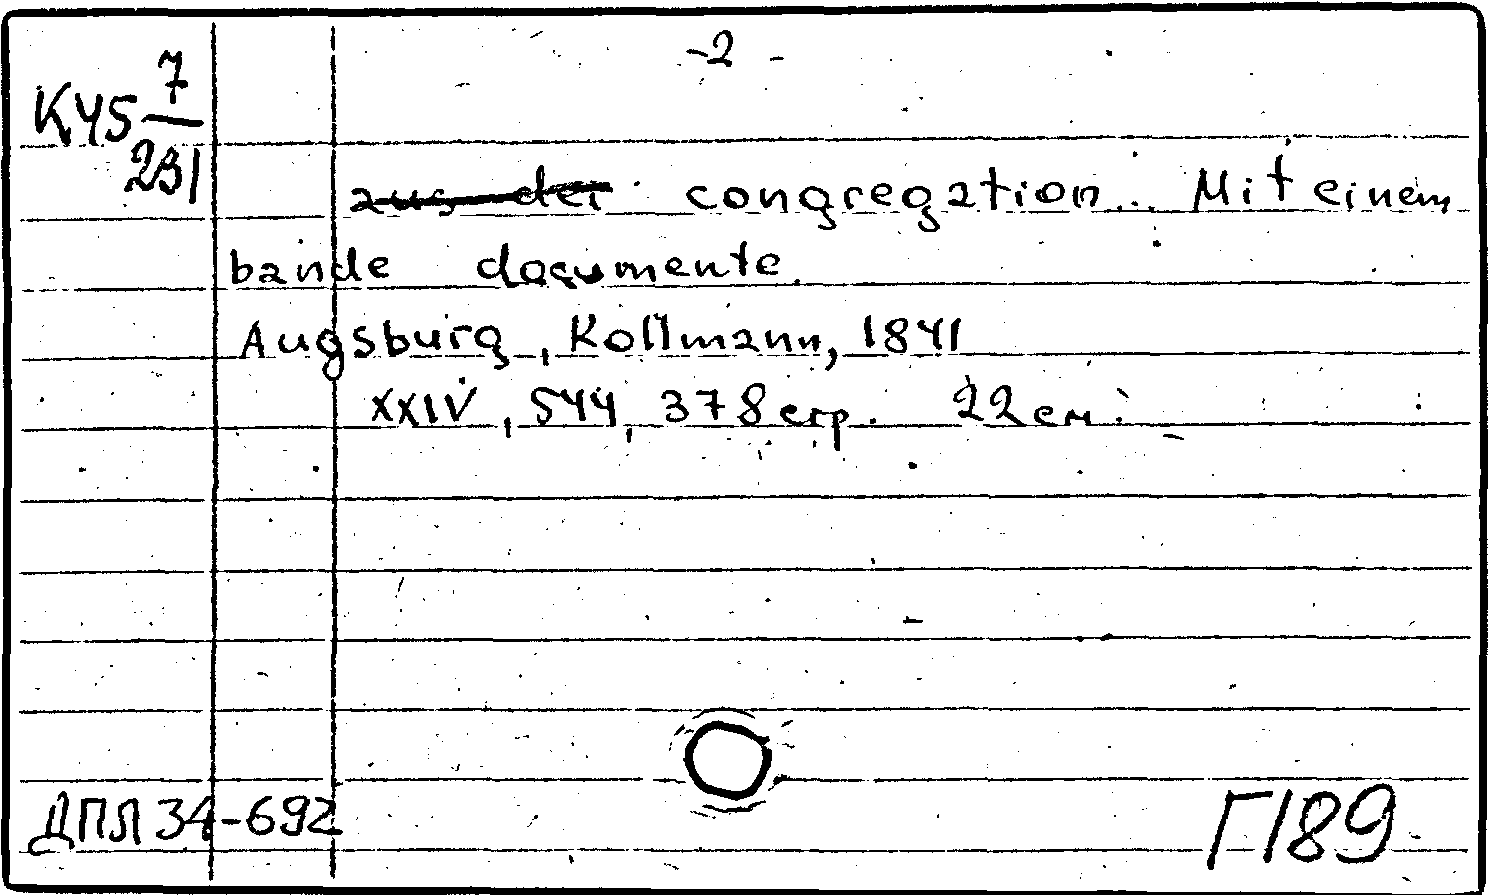 -2-
K45 7/231
aus der congregation... Mit einem
bande documente.
Augsburg, Kollmann, 1841
XXIV, 544, 378 стр. 22 см.
ДПЛ 34-692
Г189